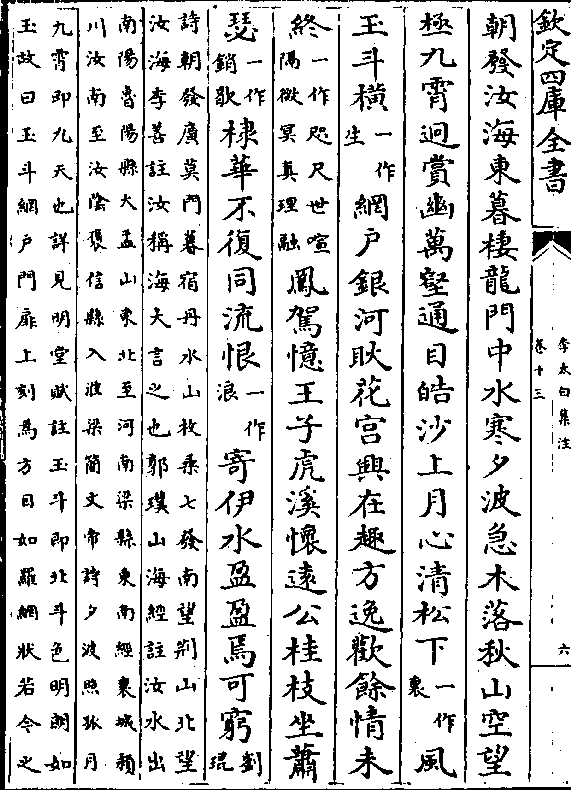 欽定四庫全書
李太白集注
卷十三
六
朝發汝海東暮棲龍門中水寒夕波急木落秋山空望
極九霄迥賞幽萬壑通目皓沙上月心清松下一作裏風
玉斗橫一作生網戶銀河耿花宮興在趣方逸歡餘情未
終一作咫尺世喧隔微冥真理融鳳駕憶王子虎溪懷遠公桂枝坐蕭
瑟一作銷歇棣華不復同流恨一作浪寄伊水盈盈焉可窮劉琨
詩朝發廣莫門暮宿丹水山枚乗七發南望荆山北望
汝海李善註汝稱海大言之也郭璞山海經註汝水出
南陽魯陽縣大孟山東北至河南梁縣東南經襄城潁
川汝南至汝陰褒信縣入淮梁簡文帝詩夕波照孤月
九霄即九天也詳見明堂賦註玉斗即北斗色明朗如
玉故曰玉斗網戶門扉上刻為方目如羅網狀若今之